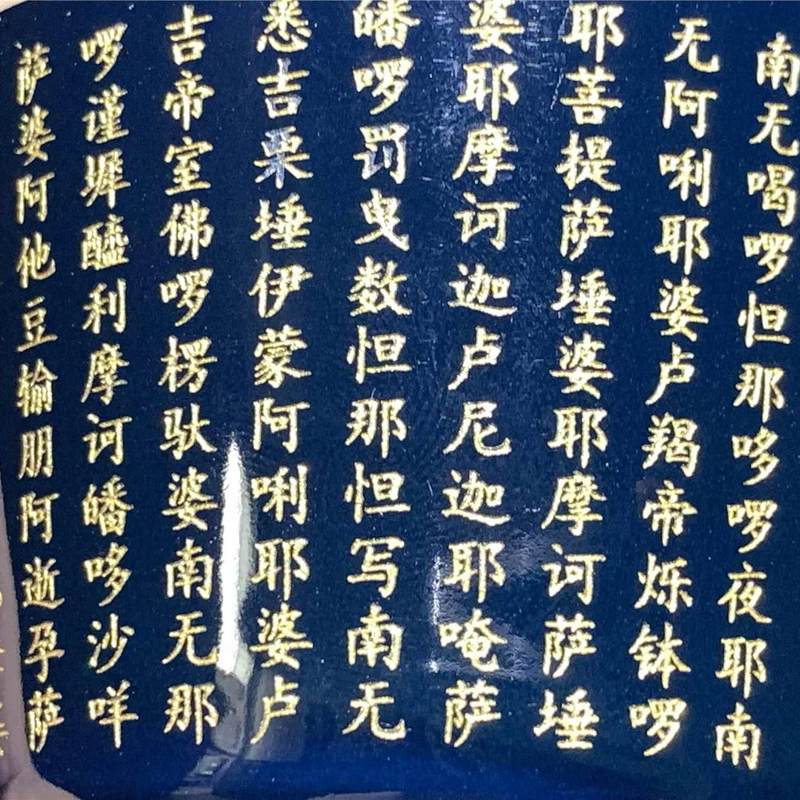 南无喝啰怛那哆啰夜耶南
无阿唎耶婆卢羯帝烁钵啰
耶菩提萨埵婆耶摩诃萨埵
婆耶摩诃迦卢尼迦耶唵萨
皤啰罚曳数怛那怛写南无
悉吉栗埵伊蒙阿唎耶婆卢
吉帝室佛啰楞驮婆南无那
啰谨墀醯利摩诃皤哆沙咩
萨婆阿他豆输朋阿逝孕萨